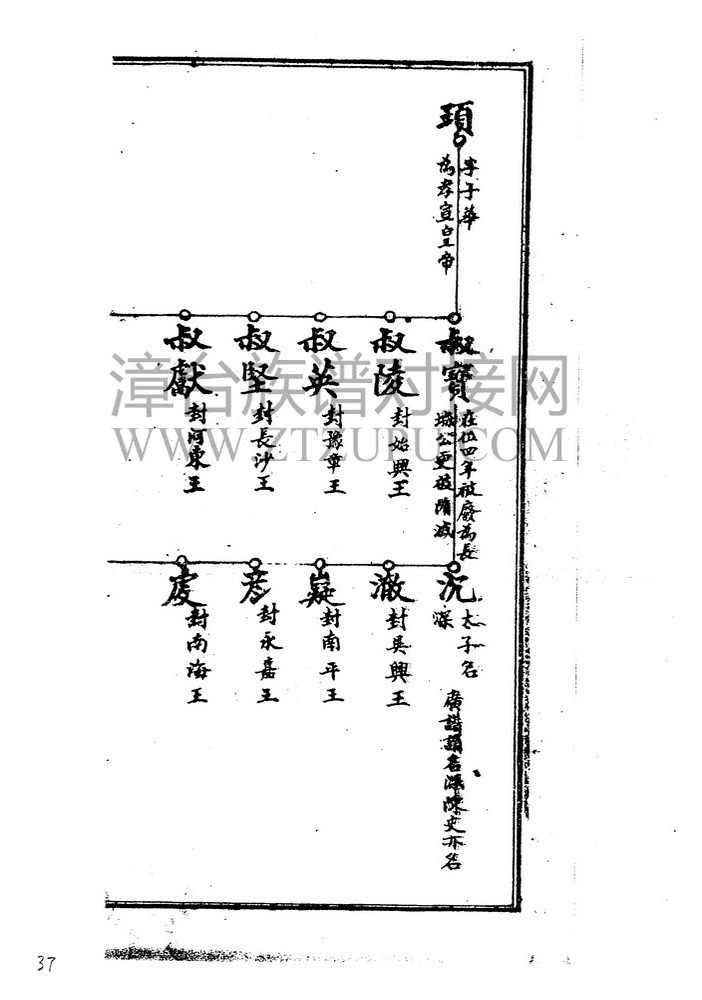 頊
字子華
為孝宣皇帝
叔寶
在位四年被廢為長
城公更被隋滅
叔陵
封始興王
叔英
封豫章王
叔堅
封長沙王
叔獻
封河東王
沉
太子名
深
廣譜謂名深陳史亦名
澈
封吳興王
嶷
封南平王
彥
封永嘉王
虔
封南海王
漳台族谱对接网
WWW.ZTZUPU.COM
37